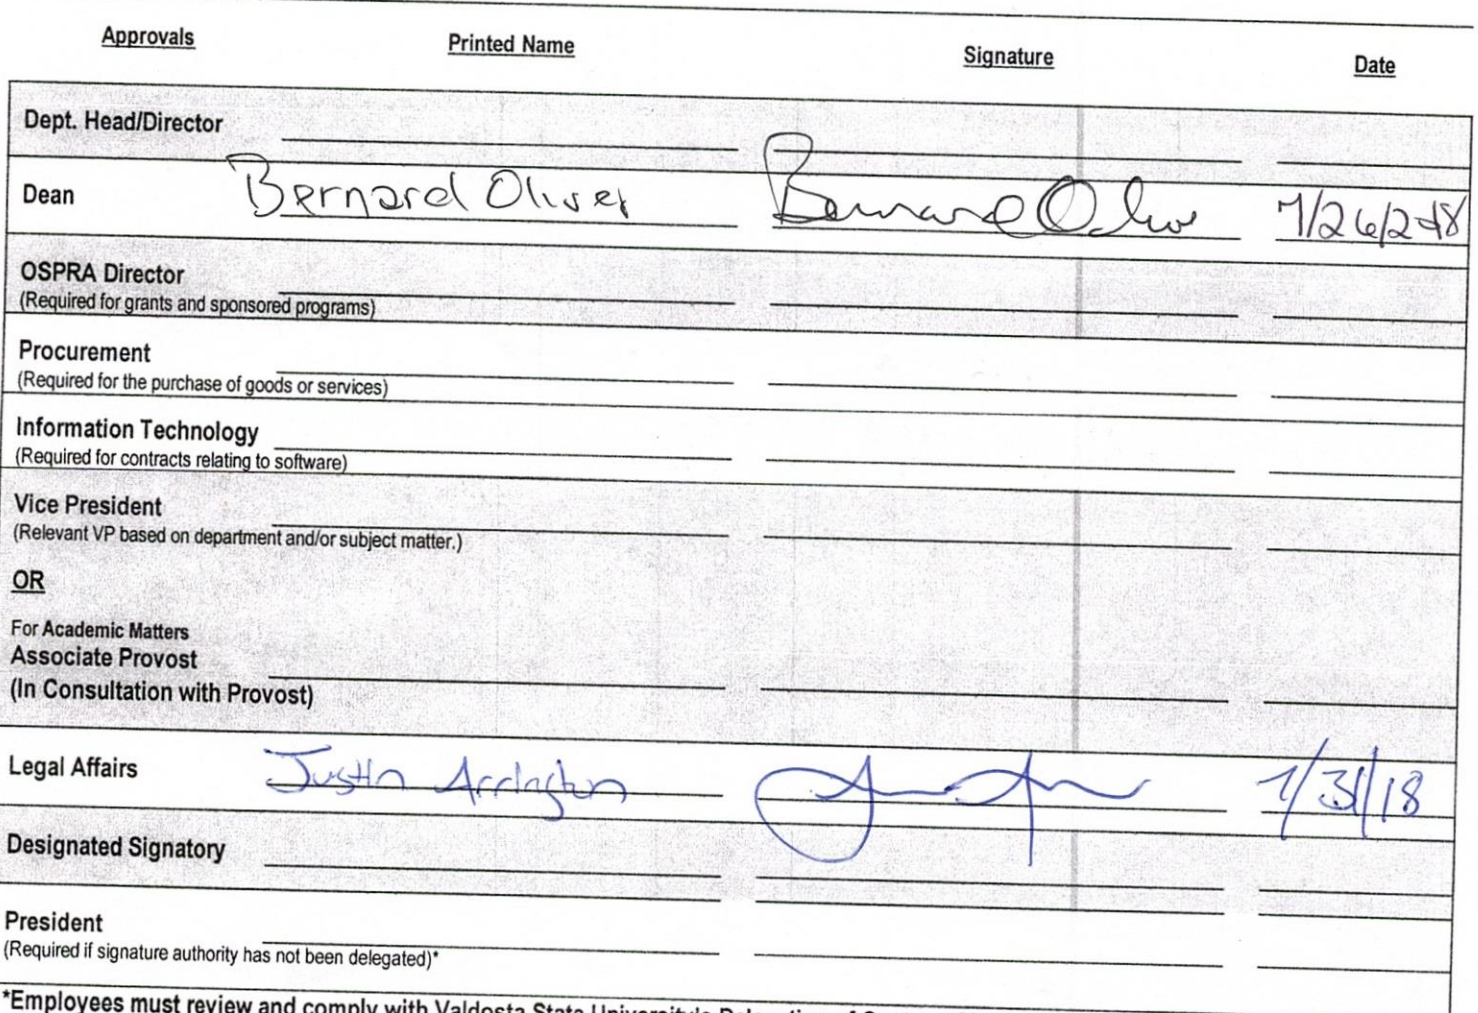 Approvals Printed Name Signature Date
Dept. Head/Director
Dean Bernard Oliver Bernard Oliver 7/26/2018
OSPRA Director
(Required for grants and sponsored programs)
Procurement
(Required for the purchase of goods or services)
Information Technology
(Required for contracts relating to software)
Vice President
(Relevant VP based on department and/or subject matter.)
OR
For Academic Matters
Associate Provost
(In Consultation with Provost)
Legal Affairs Justin Arrington 7/31/18
Designated Signatory
President
(Required if signature authority has not been delegated)*
*Employees must review and comply with Valdosta State University's Delegation of